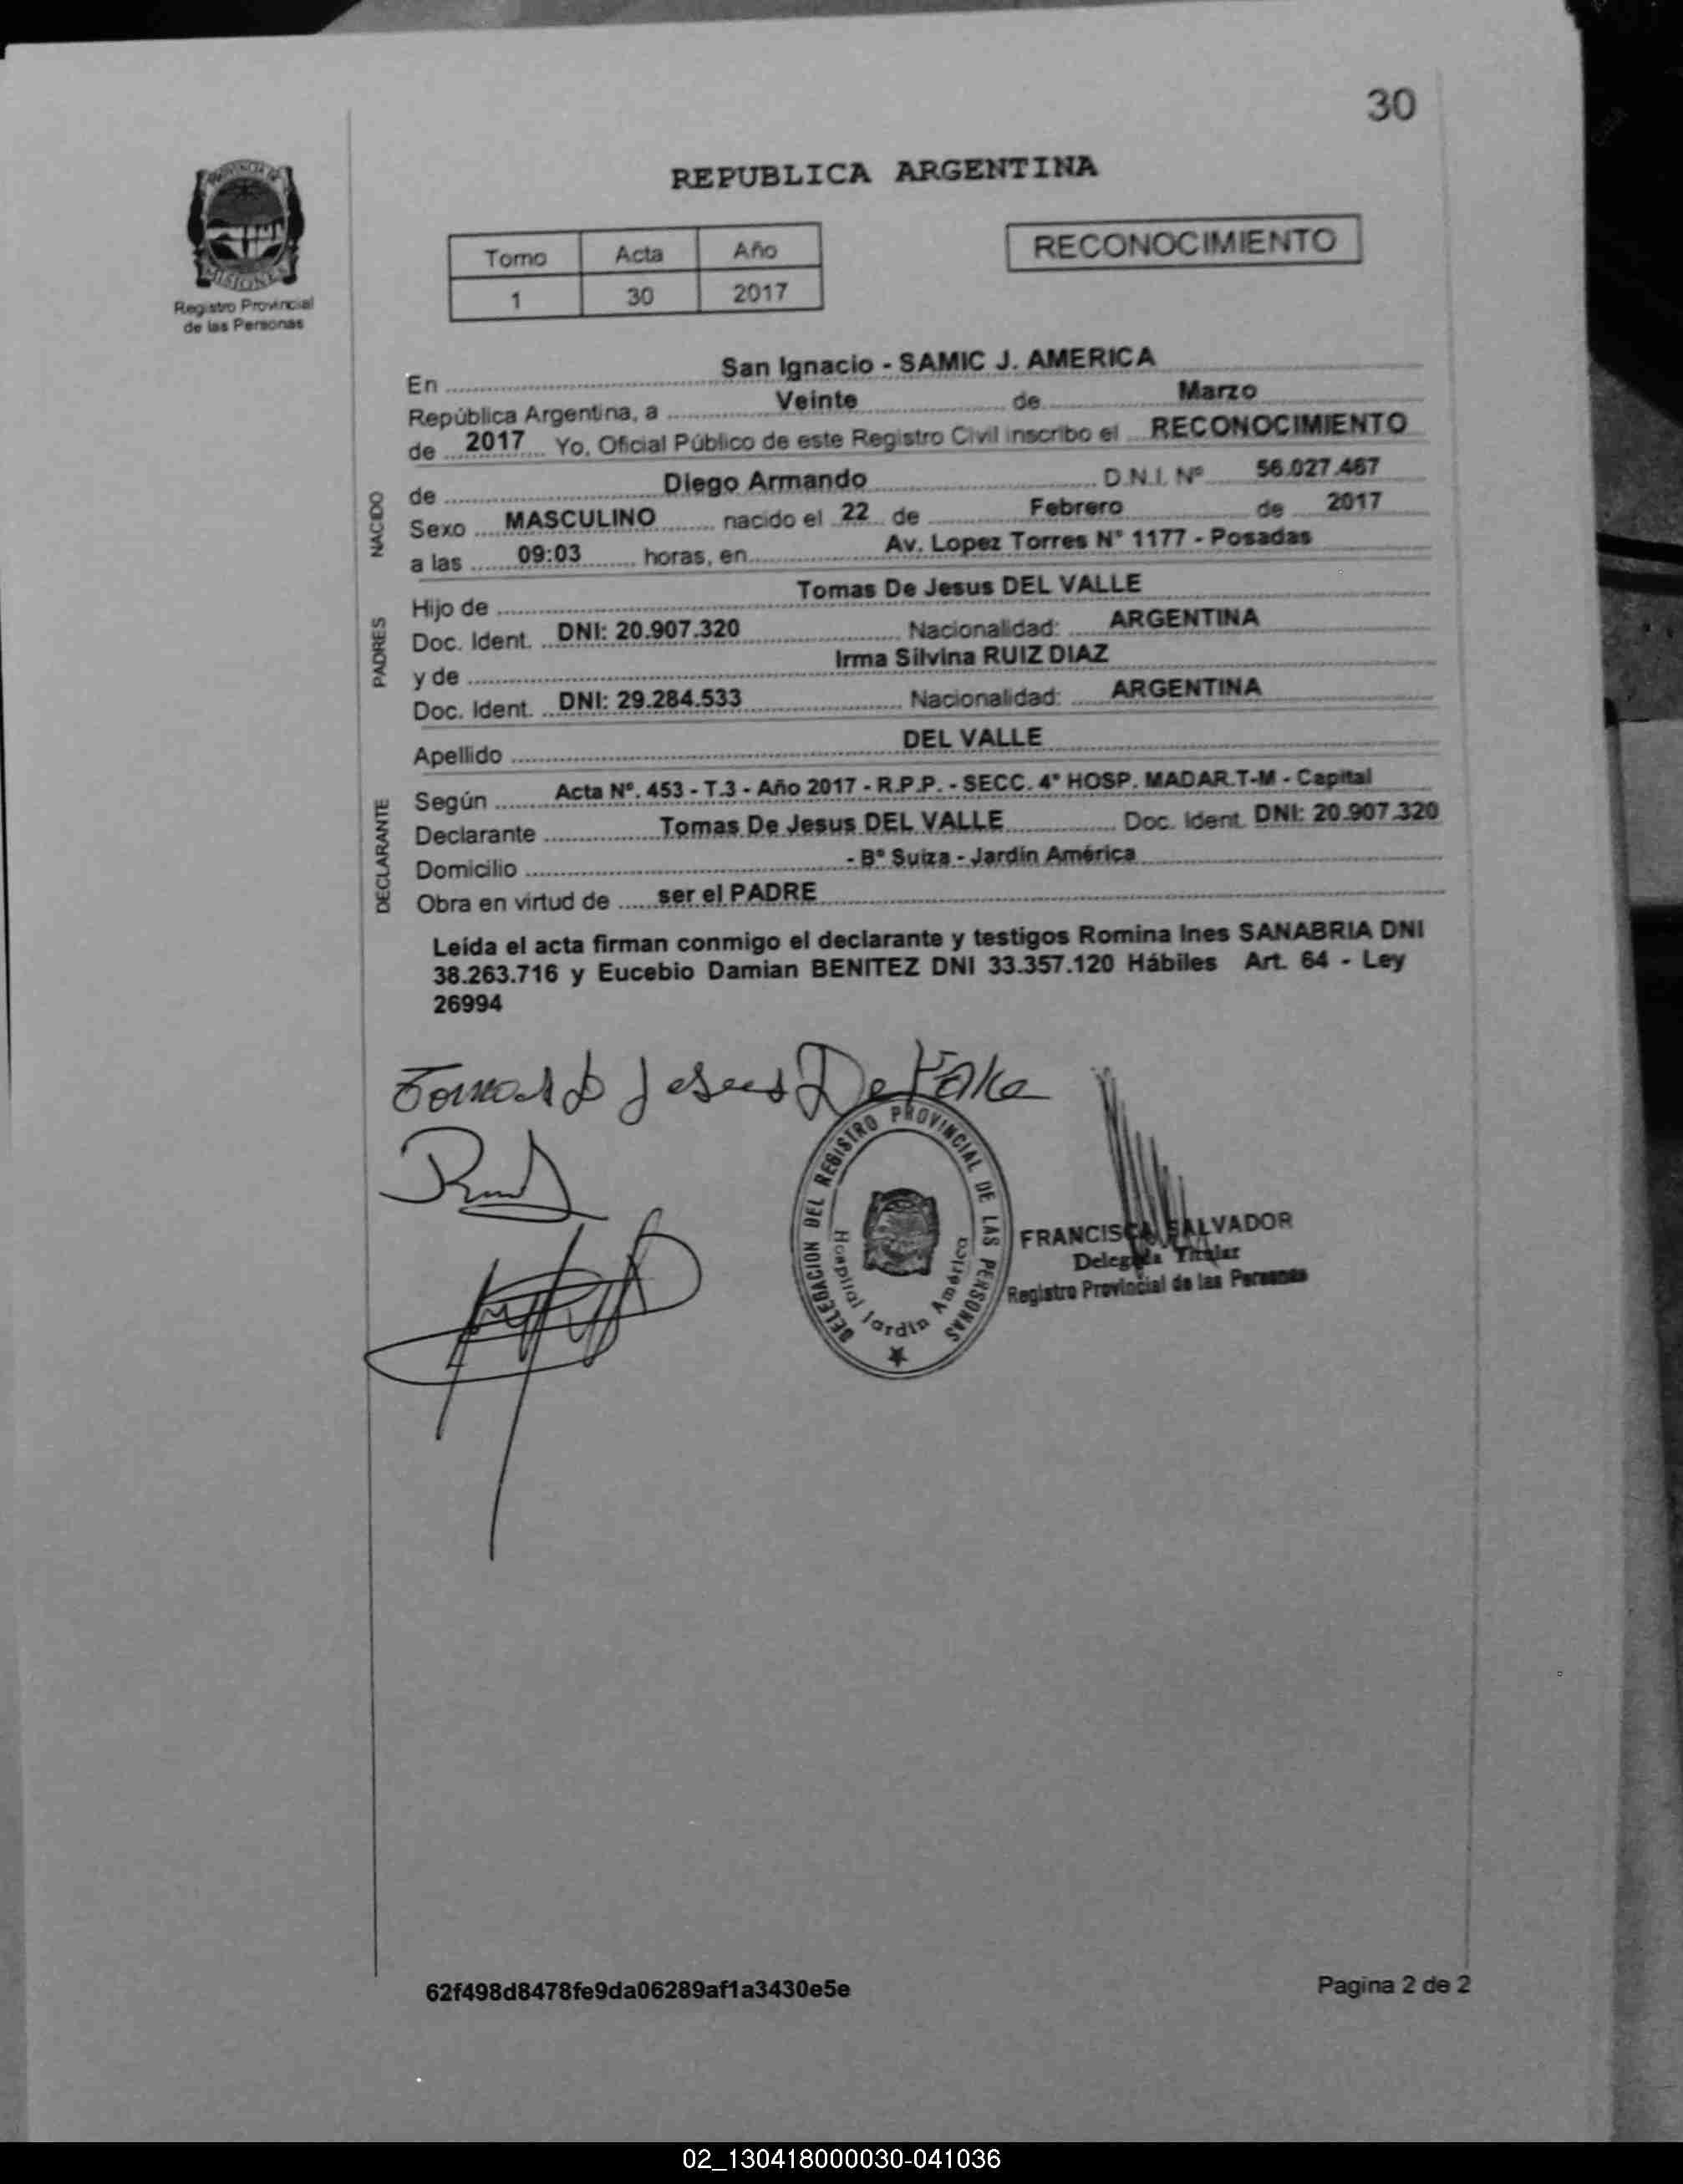 30
REPUBLICA ARGENTINA
PROVINCIA DE
MISIONES
Registro Provincial
de las Personas
Tomo Acta Año
1 30 2017
RECONOCIMIENTO
En San Ignacio - SAMIC J. AMERICA
República Argentina, a Veinte de Marzo
de 2017 Yo, Oficial Público de este Registro Civil inscribo el RECONOCIMIENTO
NACIDO
de Diego Armando D.N.I. Nº 56.027.467
Sexo MASCULINO nacido el 22 de Febrero de 2017
a las 09:03 horas, en Av. Lopez Torres N° 1177 - Posadas
PADRES
Hijo de Tomas De Jesus DEL VALLE
Doc. Ident. DNI: 20.907.320 Nacionalidad: ARGENTINA
y de Irma Silvina RUIZ DIAZ
Doc. Ident. DNI: 29.284.533 Nacionalidad: ARGENTINA
Apellido DEL VALLE
DECLARANTE
Según Acta Nº. 453 - T.3 - Año 2017 - R.P.P. - SECC. 4° HOSP. MADAR.T-M - Capital
Declarante Tomas De Jesus DEL VALLE Doc. Ident. DNI: 20.907.320
Domicilio - B° Suiza - Jardín América
Obra en virtud de ser el PADRE
Leída el acta firman conmigo el declarante y testigos Romina Ines SANABRIA DNI
38.263.716 y Eucebio Damian BENITEZ DNI 33.357.120 Hábiles Art. 64 - Ley
26994
DELEGACION DEL REGISTRO PROVINCIAL DE LAS PERSONAS
Hospital Jardín América
FRANCISCA SALVADOR
Delegada Titular
Registro Provincial de las Personas
62f498d8478fe9da06289af1a3430e5e
Pagina 2 de 2
02_130418000030-041036